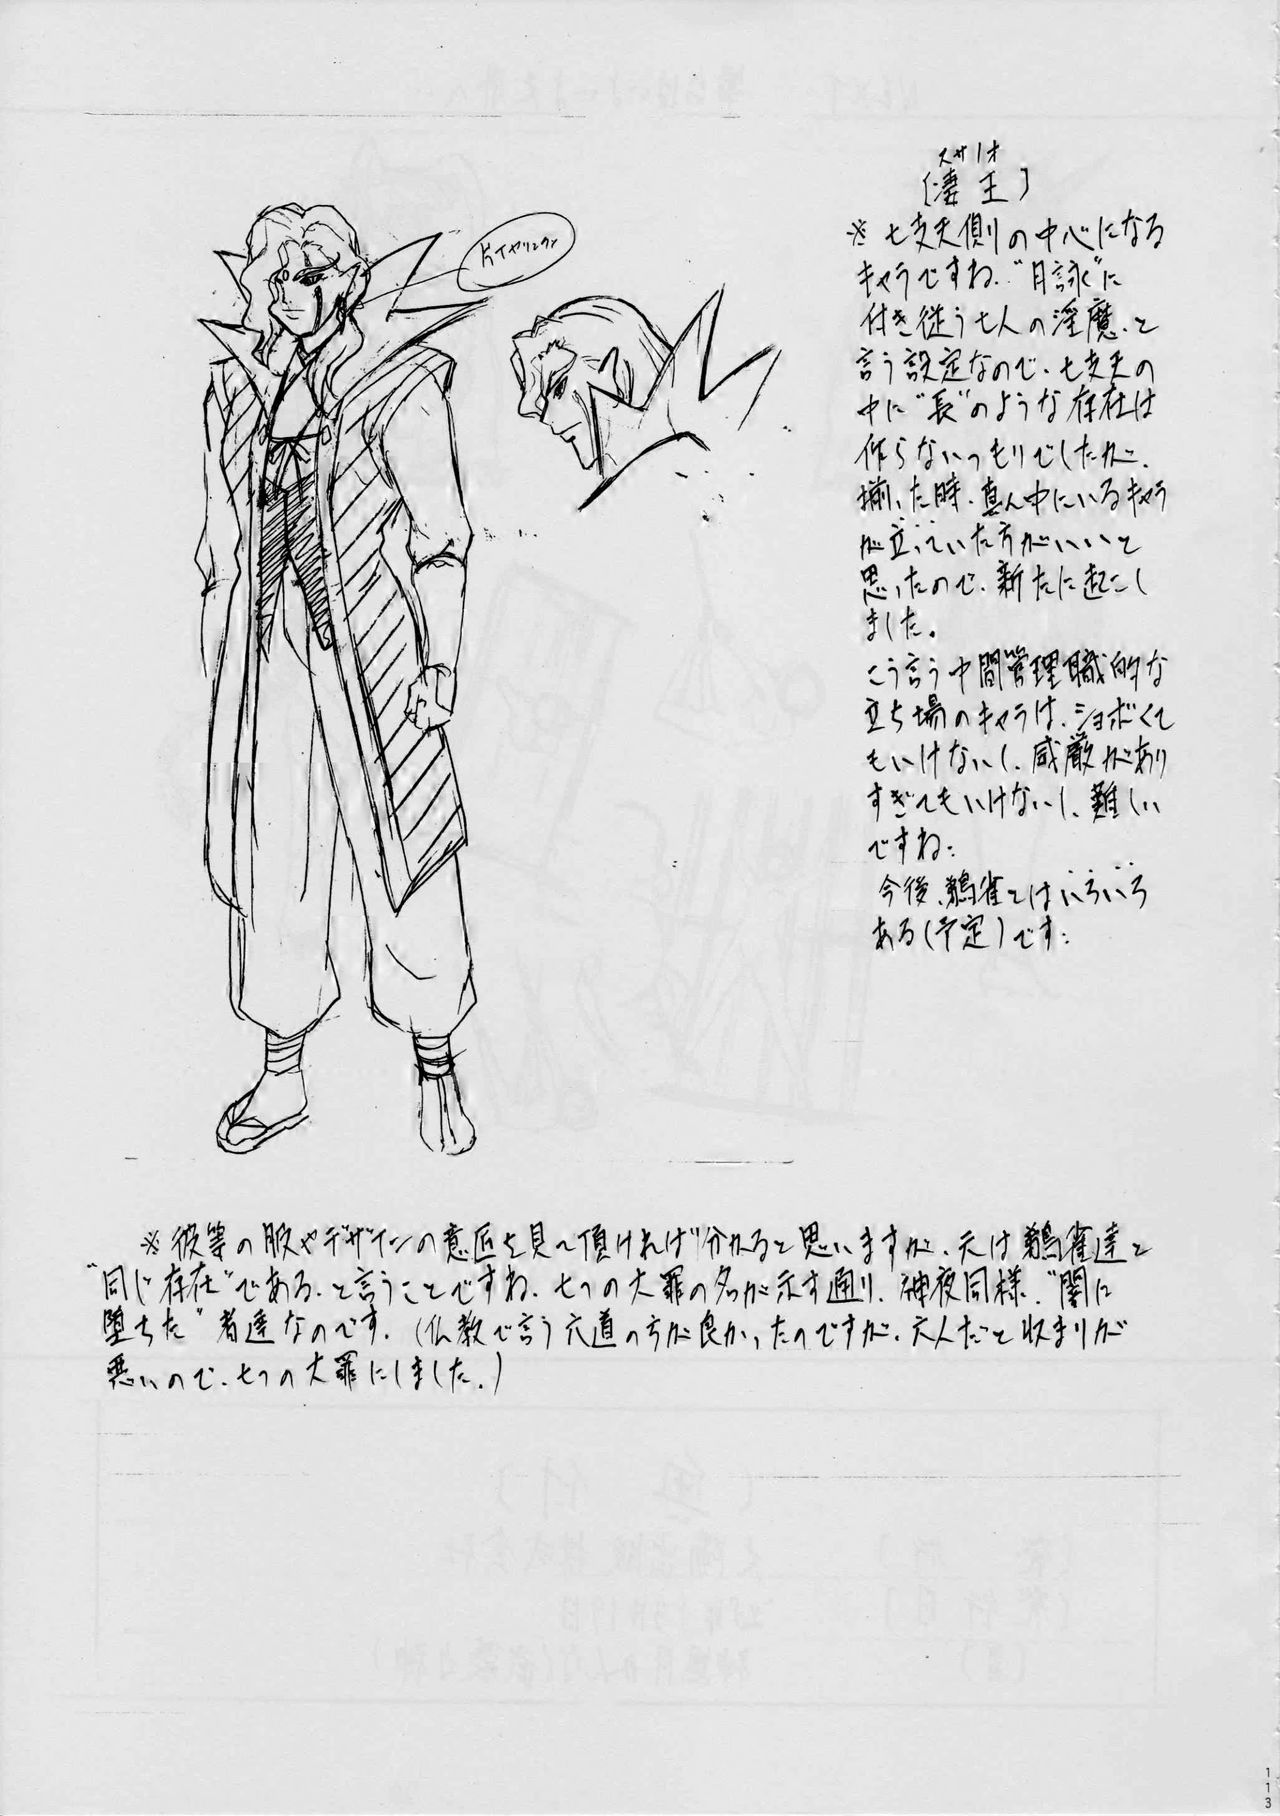 スサノオ
［凄王］
※七支天側の中心になる
キャラですね．“月詠”に
付き従う七人の淫魔．と
言う設定なので．七支天の
中に“長”のような存在は
作らないつもりでしたが、
揃った時．真ん中にいるキャラ
が立っていた方がいいと
思ったので．新たに起こし
ました。
こう言う中間管理職的な
立ち場のキャラは．ショボくて
もいけないし．威厳があり
すぎてもいけないし．難しい
ですね．
今後．鵺雀とはいろいろ
ある（予定）です．
片イヤリング
※彼等の服やデザインの意匠を見て頂ければ分かると思いますが．元は鵺雀達と
“同じ存在”である．と言うことですね．七つの大罪の名が示す通り．神夜同様．“闇に
堕ちた”者達なのです．（仏教で言う六道の方が良かったのですが．六人だと収まりが
悪いので．七つの大罪にしました．）
113